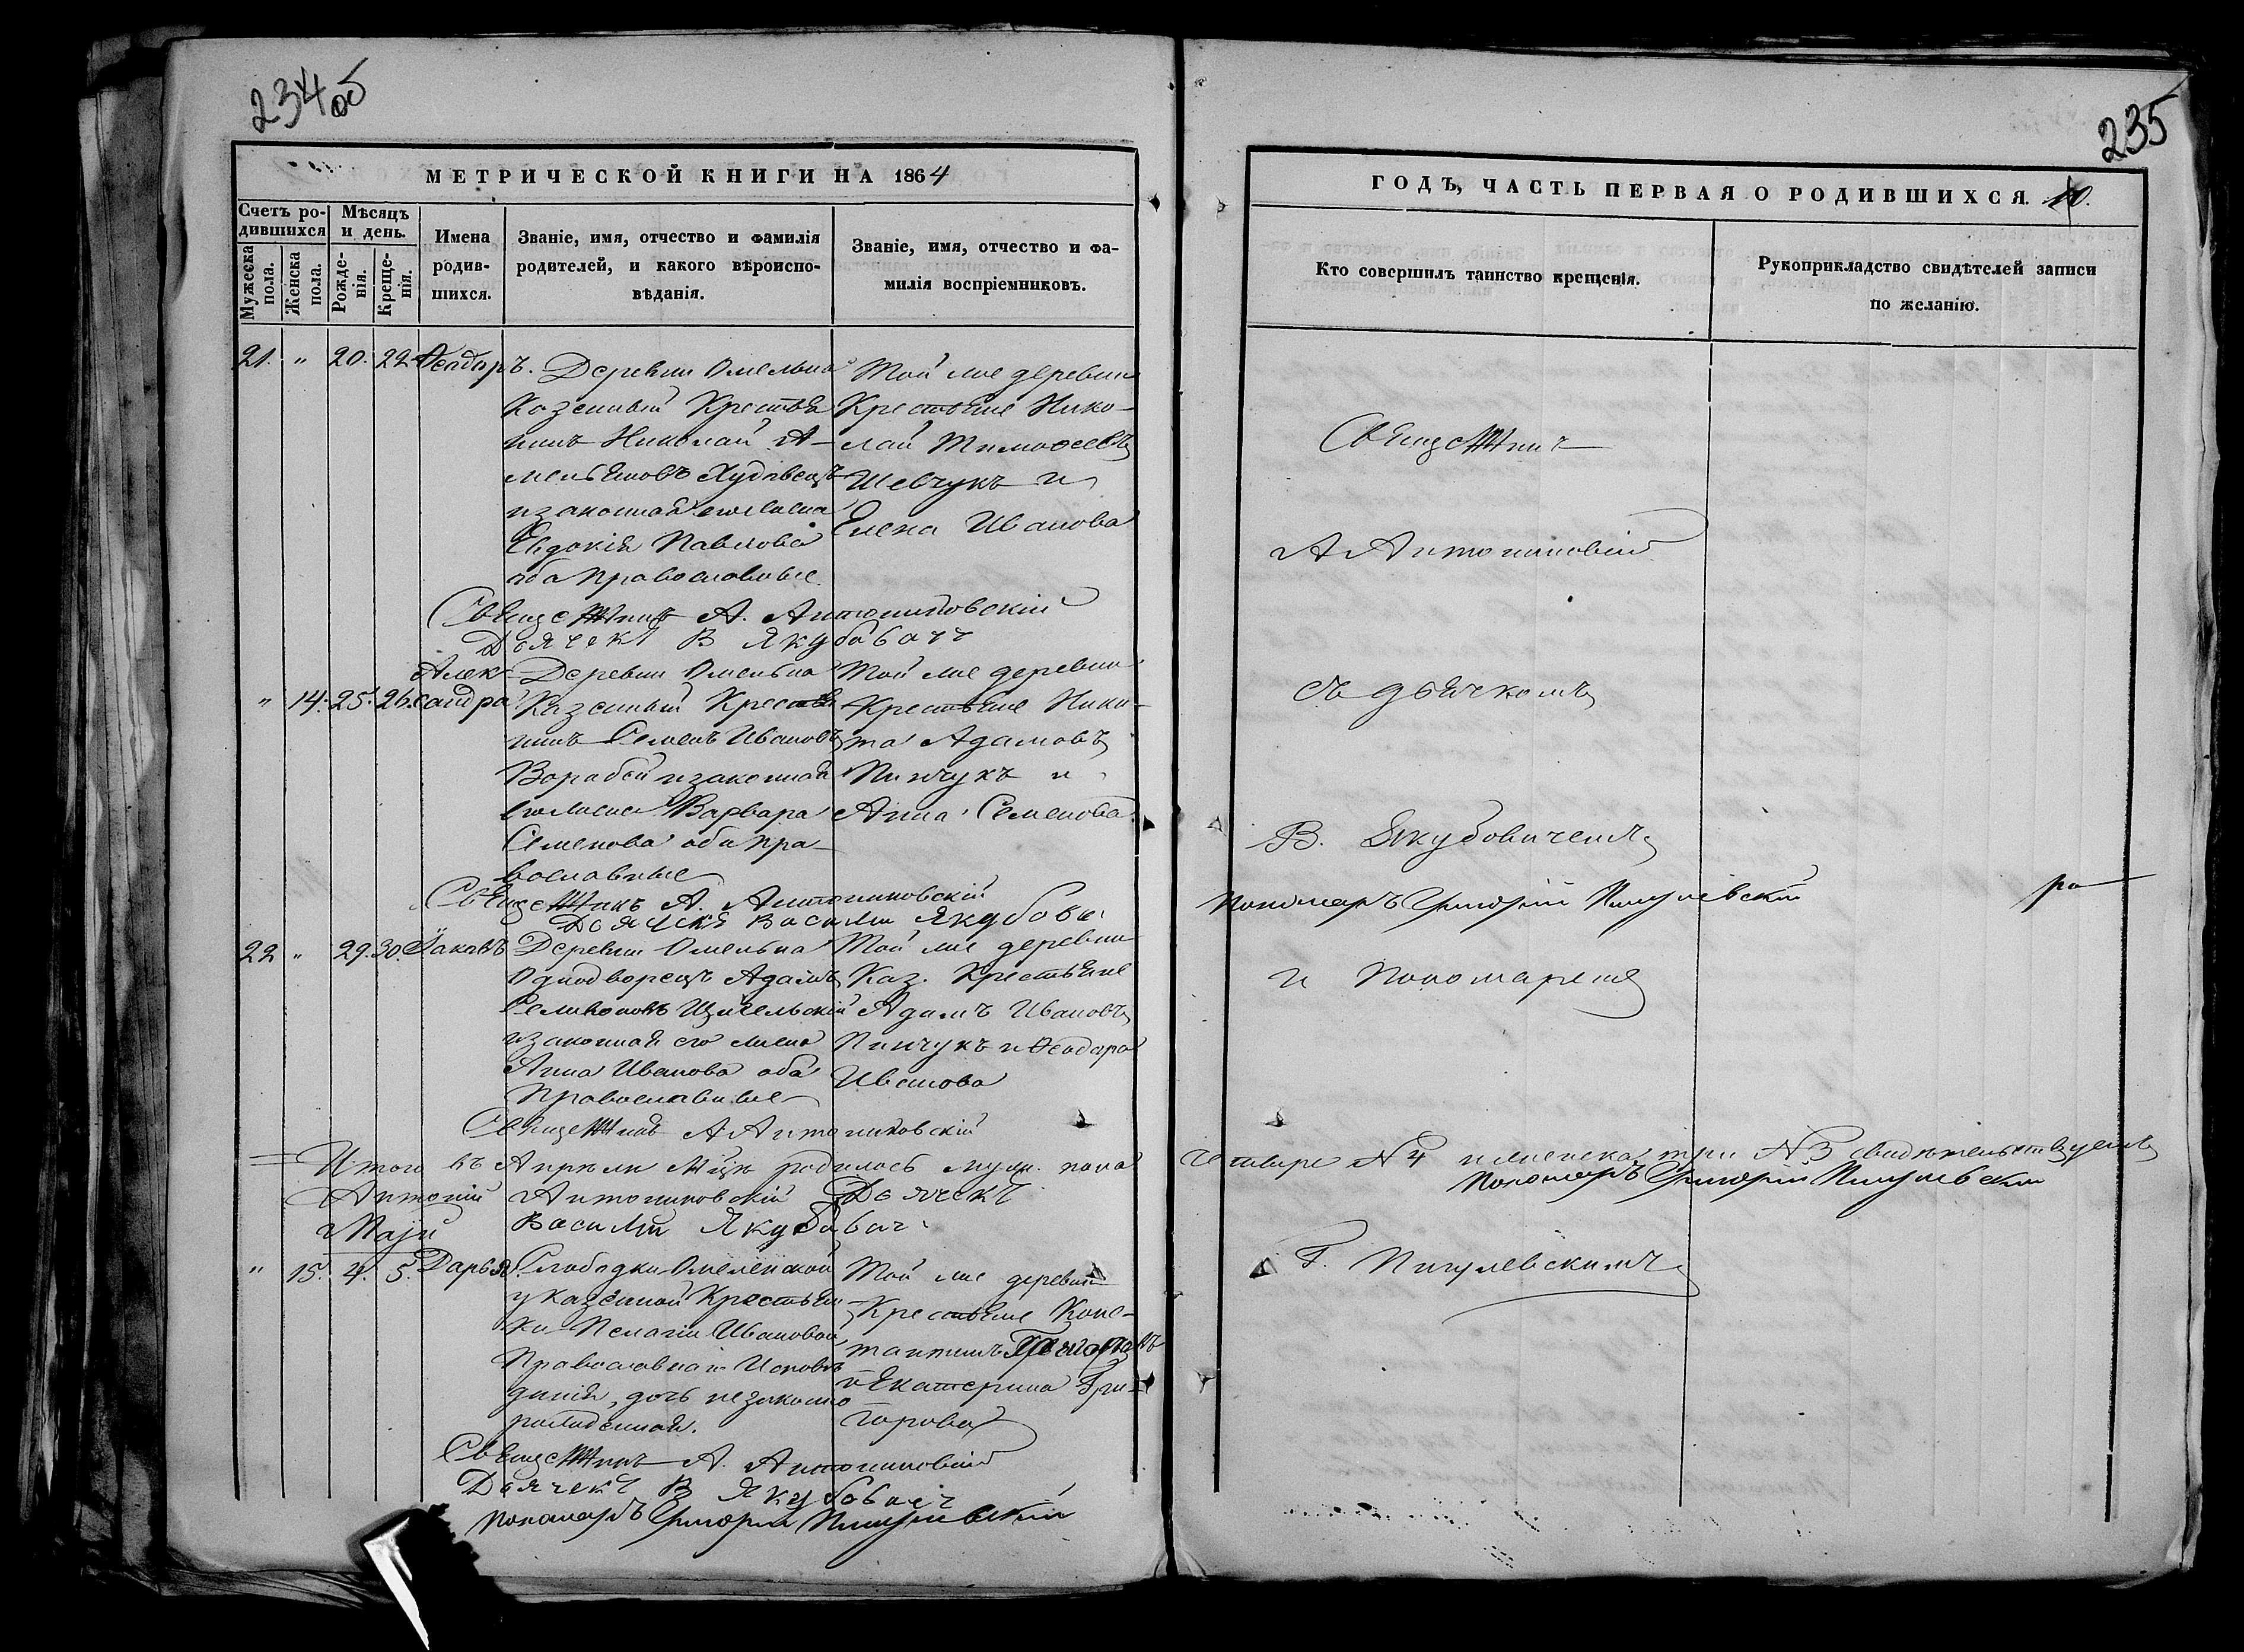 234 об
МЕТРИЧЕСКОЙ КНИГИ НА 1864
Счетъ ро-
дившихся
Мѣсяцъ
и день.
Мужеска
пола.
Женска
пола.
Рожде-
нія.
Креще-
нія.
Имена
родив-
шихся.
Званіе, имя, отчество и фамилія
родителей, и какого вѣроиспо-
вѣданія.
Званіе, имя, отчество и фа-
милія воспріемниковъ.
21. " 20. 22. Ѳеодоръ.
Деревни Омельна
Казенный Крестья
нинъ Николай А-
мельяновъ Худовецъ
и законная его жена
Евдокія Павлова
оба православные.
Той же деревни
Крестьяне Нико-
лай Тимоѳеевъ
Шевчукъ и
Елена Иванова
Священникъ А. Антониковскій
Дьячекъ В Якубовичъ
" 14. 25. 26. Алек-
сандра
Деревни Омельна
Казенный Крестья
нинъ Семенъ Ивановъ
Воробей и законная
его жена Варвара
Семенова оба пра-
вославные
Той же деревни
Крестьяне Ники-
та Адамовъ
Пинчукъ и
Анна Семенова
Священникъ А. Антониковскій
Дьячекъ Василий Якубови
22 " 29. 30. Іаковъ
Деревни Омельна
Однодворецъ Адамъ
и законная его жена
Анна Иванова оба
Православные
Той же деревни
Каз. Крестьяне
Адамъ Ивановъ
Пинчукъ и Ѳеодора
Иванова
Священникъ А Антониковскій
Итого въ Апрѣли Мцѣ родилось муж. пола
Антоній Антониковскій Дьячекъ
Василий Якубович
Маій
" 15. 4. 5. Дарья
Слободки Омеленской
у казенной Крестьян
ки Пелагіи Ивановой
Православнаго Исповѣ
данія, дочь незаконно
рожденная.
Той же деревни
Крестьяне Конс-
тантинъ
и Екатерина Гри-
горова
Священникъ А. Антониковскій
Дьячекъ В Якубовичъ
пономарь Григорій Пигулевскій
235
ГОДЪ, ЧАСТЬ ПЕРВАЯ О РОДИВШИХСЯ. 10.
Кто совершилъ таинство крещенія.
Рукоприкладство свидѣтелей записи
по желанію.
Священникъ
А Антониковскій
съ дьячкомъ
В. Якубовичемъ
пономарь Григорій Пигулевскій
и Пономаремъ
четыре № 4 и женска три № 3 свидѣтельствуемъ
пономарь Григорій Пигулевскій
Г. Пигулевскимъ